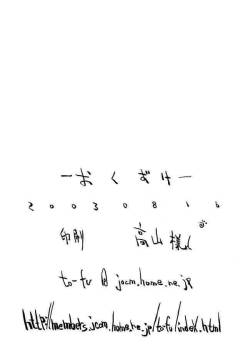 ーおくづけー
20030816
印刷 高山様
to-fu @ jcom.home.ne.jp
http://members.jcom.home.ne.jp/to-fu/index.html